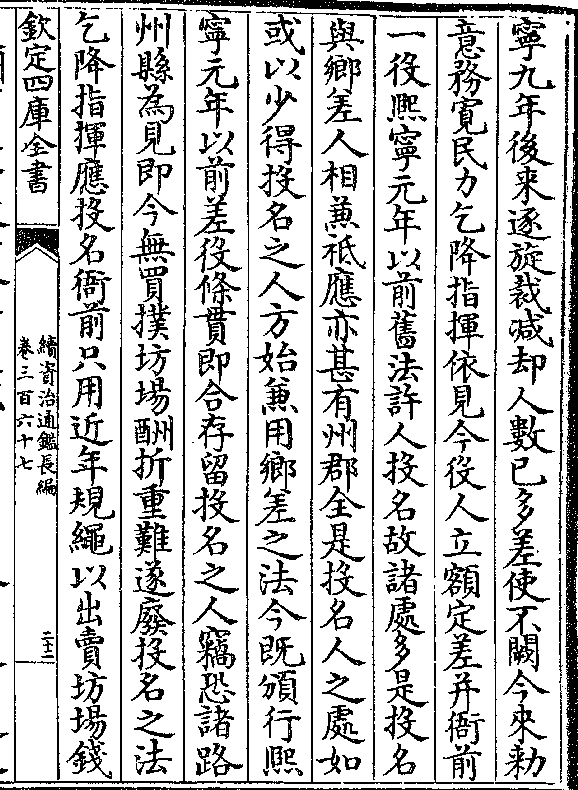 寧九年後来逐旋裁减却人數已多差使不闕今來勅
意務寛民力乞降指揮依見今役人立額定差并衙前
一役熙寧元年以前舊法許人投名故諸處多是投名
與鄉差人相兼祗應亦甚有州郡全是投名人之處如
或以少得投名之人方始兼用鄉差之法今既頒行熙
寧元年以前差役條貫即合存留投名之人竊恐諸路
州縣為見即今無買撲坊場酬折重難遂廢投名之法
乞降指揮應投名衙前只用近年規繩以出賣坊場錢
欽定四庫全書
續資治通鑑長編
卷三百六十七
二十二